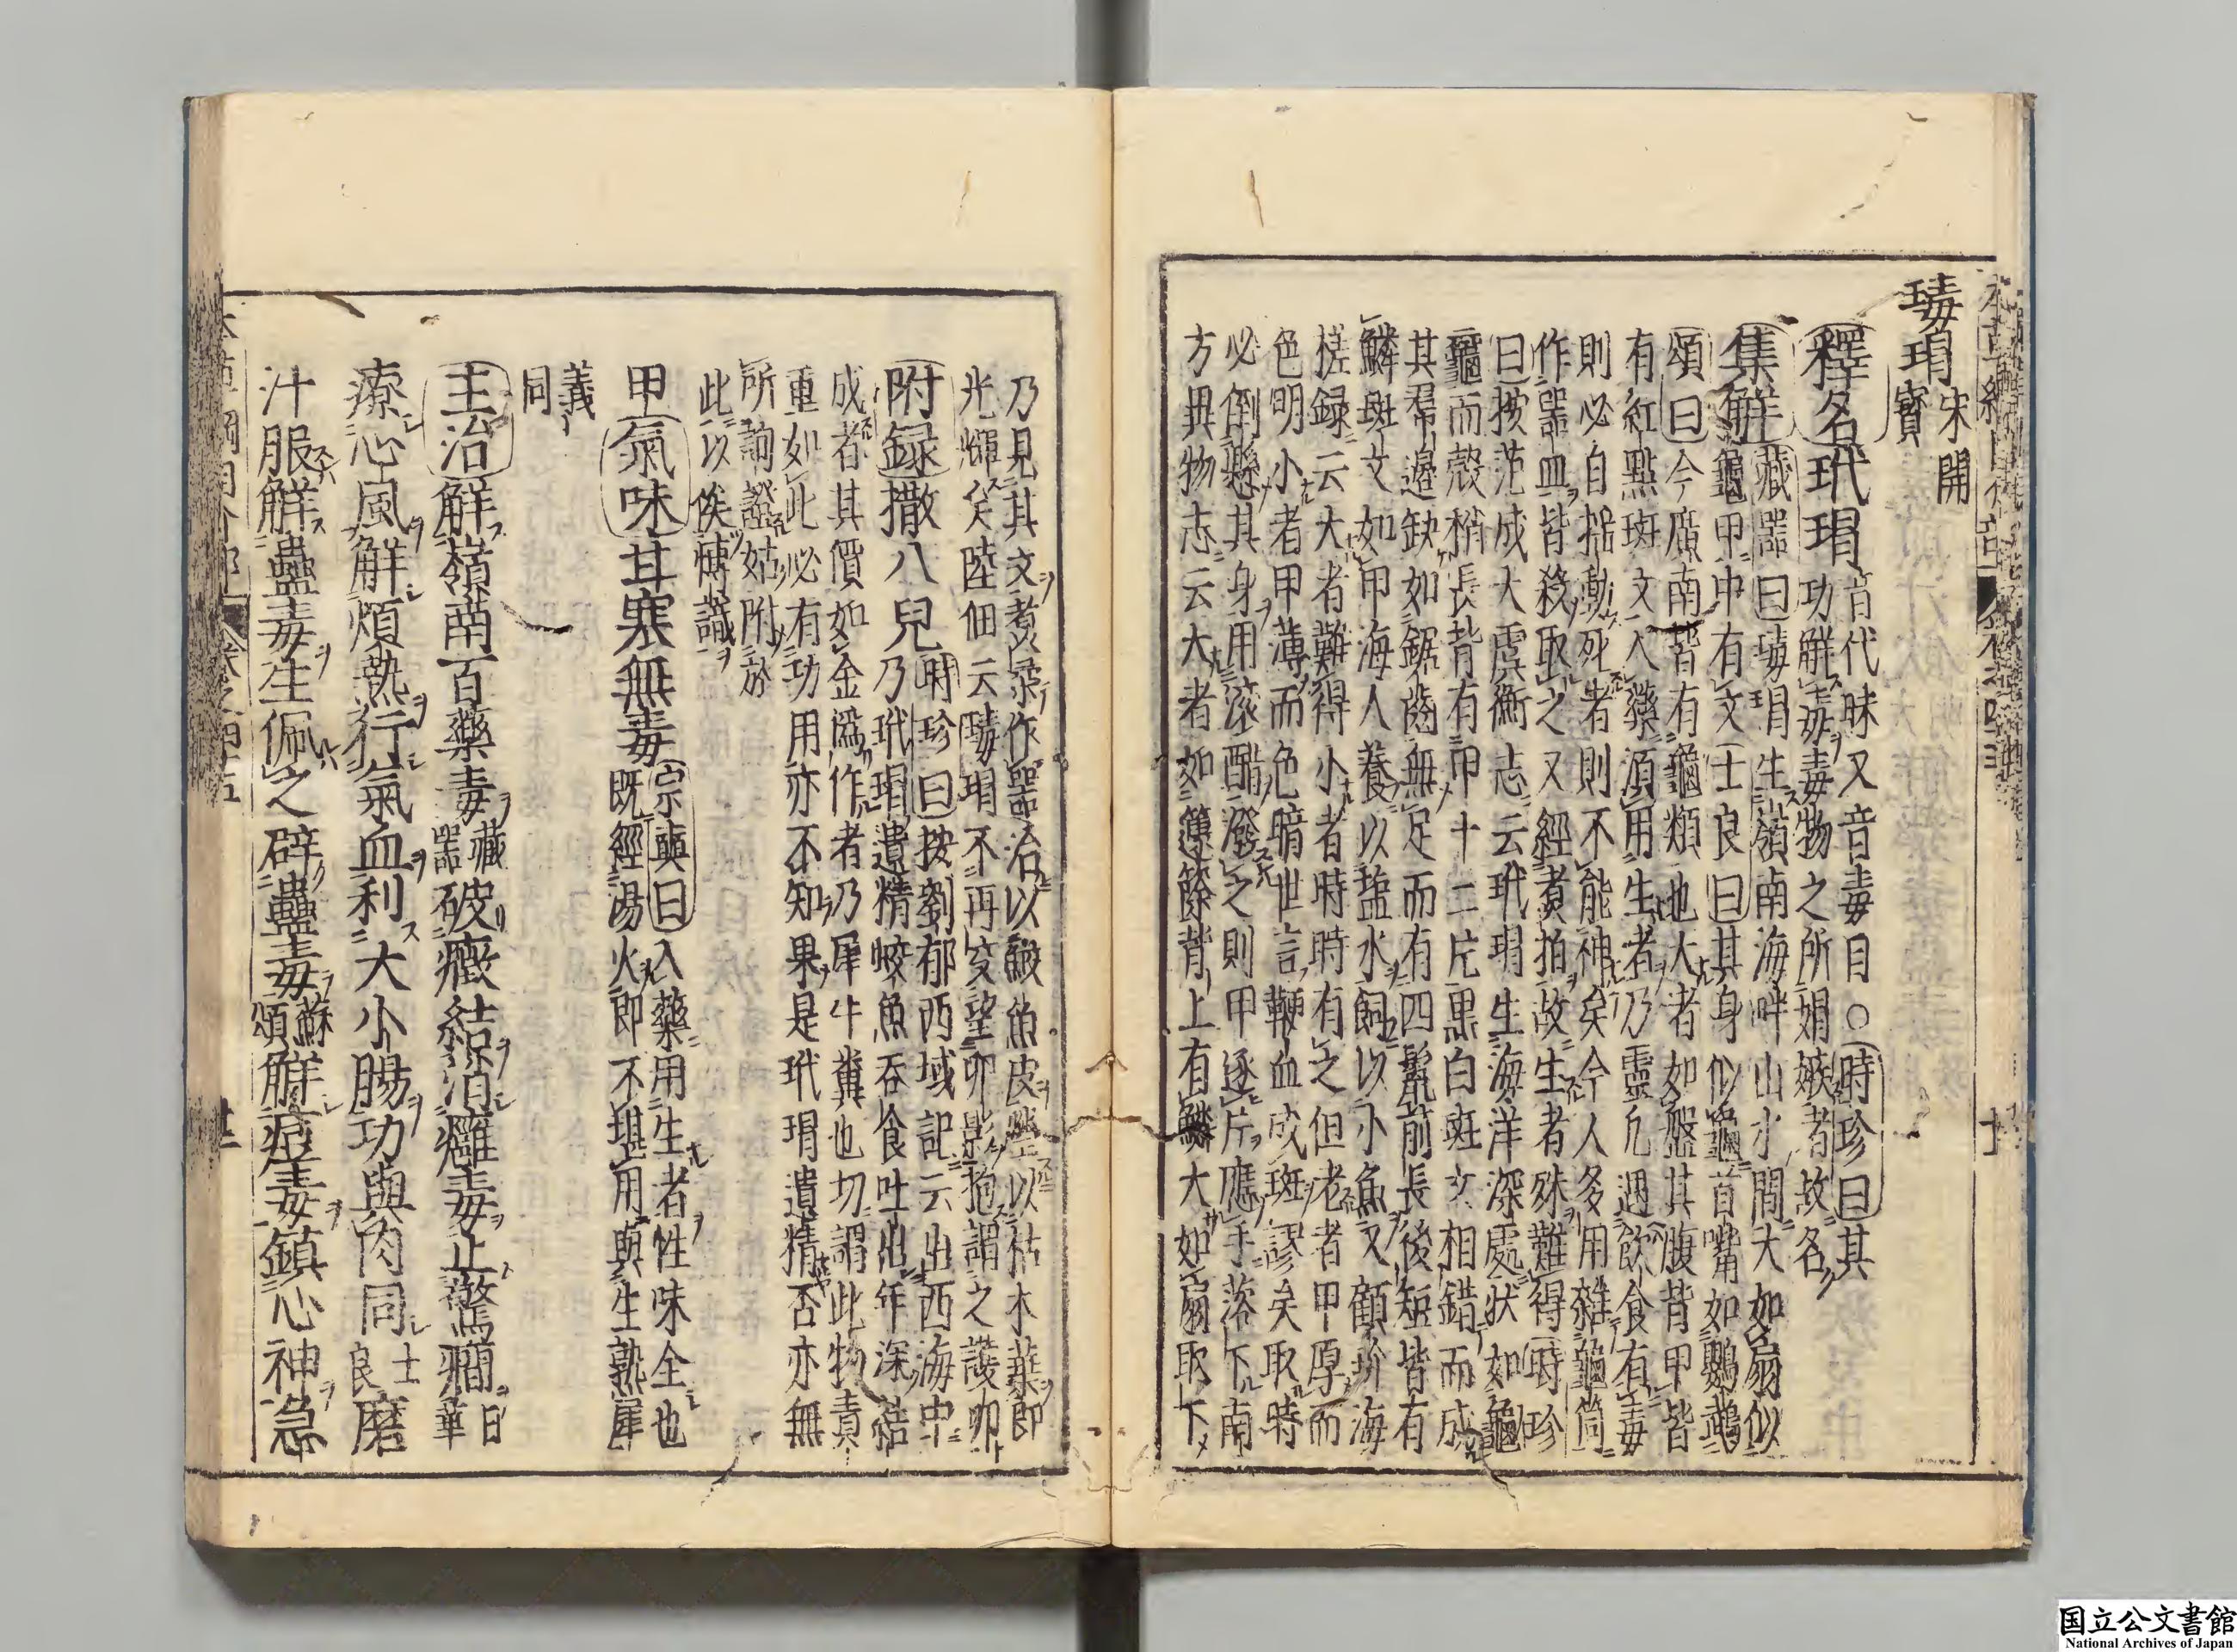 瑇瑁宋開
寳
釋名玳瑁音代昧又音毒目○時珍曰其
功解毒毒物之所媢嫉者故名
集解藏器曰瑇瑁生嶺南海畔山水間大如扇似
龜甲中有文士良曰其身似龜首嘴如鸚鵡
頌曰今廣南皆有龜類也大者如盤其腹背甲皆
有紅點斑文入藥須用生者乃靈凡遇飲食有毒
則必自搖動死者則不能神矣今人多用雜龜筒
作器皿皆殺取之又經煮拍故生者殊難得時珍
曰按范成大虞衡志云玳瑁生海洋深處狀如龜
黿而殼稍長背有甲十二片黒白斑文相錯而成
其裙邊缺如鋸齒無足而有四鬣前長後短皆有
鱗斑文如甲海人養以塩水飼以小魚又顧玠海
槎録云大者難得小者時時有之但老者甲厚而
色明小者甲薄而色暗世言鞭血成斑謬矣取時
必倒懸其身用滚醋潑之則甲逐片應手落下南
方異物志云大者如籧篨背上有鱗大如扇取下
乃見其文煮柔作器治以鮫魚皮瑩以枯木葉即
光輝矣陸佃云瑇瑁不再交望卵影抱謂之護卵
附録撒八兒時珍曰按劉郁西域記云出西海中
乃玳瑁遺精蛟魚吞食吐出年深結
成者其價如金僞作者乃犀牛糞也切謂此物貴
重如此必有功用亦不知果是玳瑁遺精否亦無
所詢證姑附於
此以俟博識
甲氣味甘寒無毒宗奭曰入藥用生者性味全也
既經湯火即不堪用與生熟犀
義
同
主治解嶺南百藥毒藏器破癥結消癰毒止驚癇日華
療心風解煩熱行氣血利大小腸功與肉同士良磨
汁服解蠱毒生佩之辟蠱毒蘇頌解痘毒鎮心神急
国立公文書館
National Archives of Japan